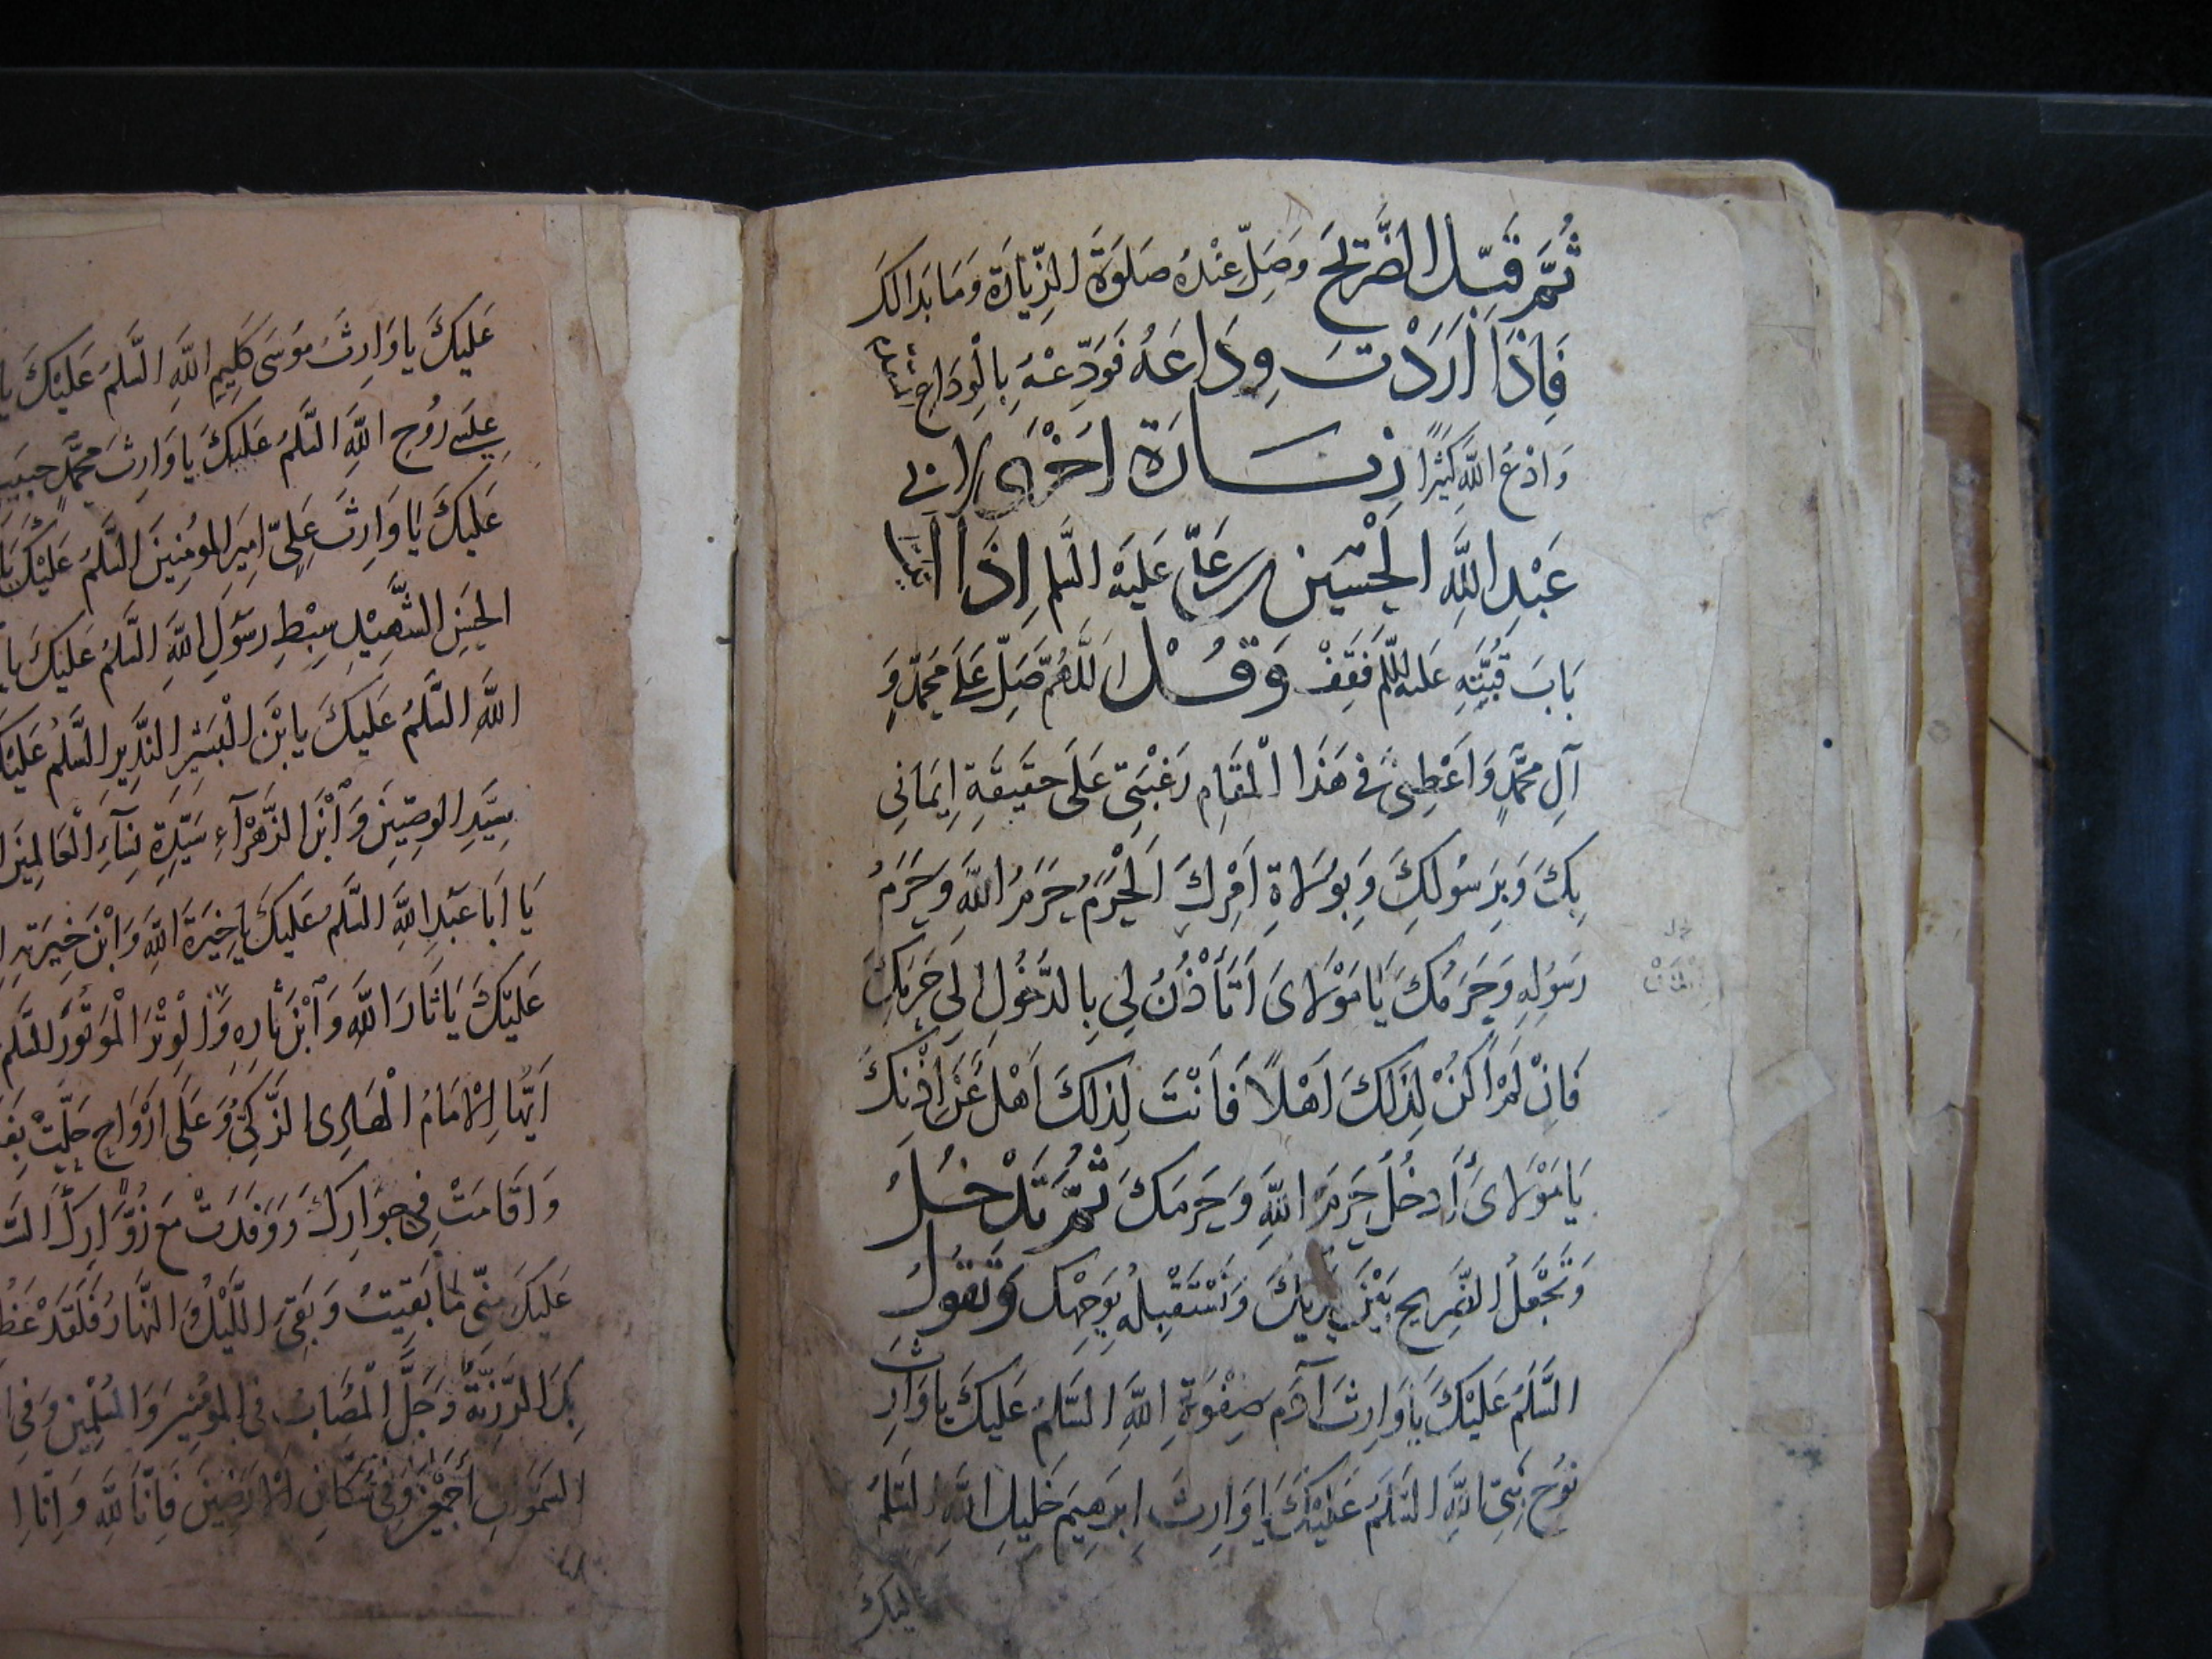 ثُمَّ قَبِّلِ الضَّرِيحَ وَصَلِّ عِنْدَهُ صَلوةَ الزِّيَارَةِ وَمَا بَدَا لَكَ
فَاِذَا اَرَدْتَ وِدَاعَهُ فَوَدِّعْهُ بِالْوِدَاعِ
وَادْعُ اللهَ كَثِيرًا زِيَارَة اُخْرَى لِاَبِي
عَبْدِ اللهِ الْحُسَيْنِ بن عَلِيٍّ عَلَيْهِ السَّلم اِذَا اَتَيْتَ
بَابَ قُبَّتِهِ عَلَيْهِ السَّلم فَقِفْ وَقُلْ اَللَّهُمَّ صَلِّ عَلَى مُحَمَّدٍ وَ
آلِ مُحَمَّدٍ وَاَعْطِنِي فِي هَذَا الْمَقَامِ رَغْبَتِي عَلَى حَقِيقَةِ اِيمَانِي
بِكَ وَبِرَسُولِكَ وَبِوُلَاةِ اَمْرِكَ اَلْحَرَمُ حَرَمُ اللهِ وَحَرَمُ
رَسُولِهِ وَحَرَمُكَ يَا مَوْلَايَ اَتَأْذَنُ لِي بِالدُّخُولِ اِلَى حَرَمِكَ
فَاِنْ لَمْ اَكُنْ لِذَلِكَ اَهْلًا فَاَنْتَ لِذَلِكَ اَهْل عَنْ اِذْنِكَ
يَا مَوْلَايَ أَدخُلُ حَرَمَ اللهِ وَحَرَمَكَ ثُمَّ تَدْخُلُ
وَتَجْعَلُ الضَّرِيح بَيْنَ يَدَيْكَ وَتَسْتَقْبِلُهُ بِوَجْهِكَ وَتَقُولُ
السَّلَمُ عَلَيْكَ يَا وَارِثَ آدَمَ صِفْوَةِ اللهِ السَّلَمُ عَلَيْكَ يا وَارِثَ
نُوحٍ نَبِيِّ اللهِ السَّلَمُ عَلَيْكَ يَا وَارِثَ اِبْرَهِيمَ خَلِيلِ اللهِ السَّلَمُ
عليك
عَلَيْكَ يا وَارِثَ مُوسَى كَلِيمِ اللهِ السَّلمُ عَلَيْكَ يا
عِيسَى رُوحِ اللهِ السَّلَمُ عَلَيْكَ يا وَارِثَ مُحَمَّدٍ حَبِيبِ
عَلَيْكَ يَا وَارِثَ عَلِيٍّ اَمِيرِ الْمُؤْمِنِينَ السَّلَمُ عَلَيْكَ يَا
الْحَسَنِ الشَّهِيدِ سِبْطِ رَسُولِ اللهِ السَّلَمُ عَلَيْكَ يا
اللهِ السَّلَمُ عَلَيْكَ يا بْنَ الْبَشِيرِ النَّذِيرِ السَّلَمُ عَلَيْكَ
سَيِّدِ الْوَصِيِّينَ وَابْنَ الزَّهْرَآءِ سَيِّدَةِ نِسَآءِ الْعَالَمِينَ
يَا اَبَا عَبْدِ اللهِ السَّلَمُ عَلَيْكَ يا خِيَرَةَ اللهِ وَابْنَ خِيَرَتِهِ
عَلَيْكَ يَا ثَارَ اللهِ وَابْنَ ثَأرِهِ وَالْوِتْرَ الْمَوْتُورَ السَّلَم
اَيُّهَا الْاِمَامُ الْهَادِي الزَّكِيُّ وَعَلَى اَرْوَاحٍ حَلَّتْ
وَاَقَامَتْ فِي جِوَارِكَ وَوَفَدَتْ مَعَ زُوَّارِكَ
عَلَيْكَ مِنِّي مَا بَقِيتُ وَبَقِيَ اللَّيْلُ وَالنَّهَارُ فَلَقَدْ
بِكَ الرَّزِيَّةُ وَجَلَّ الْمُصَابُ فِي الْمُؤْمِنِينَ وَالْمُسْلِمِينَ وَفِي
السَّمَوَاتِ اَجْمَعِينَ وَفِي سُكَّانِ الْاَرَضِينَ فَاِنَّا لِلَّهِ وَاِنَّا